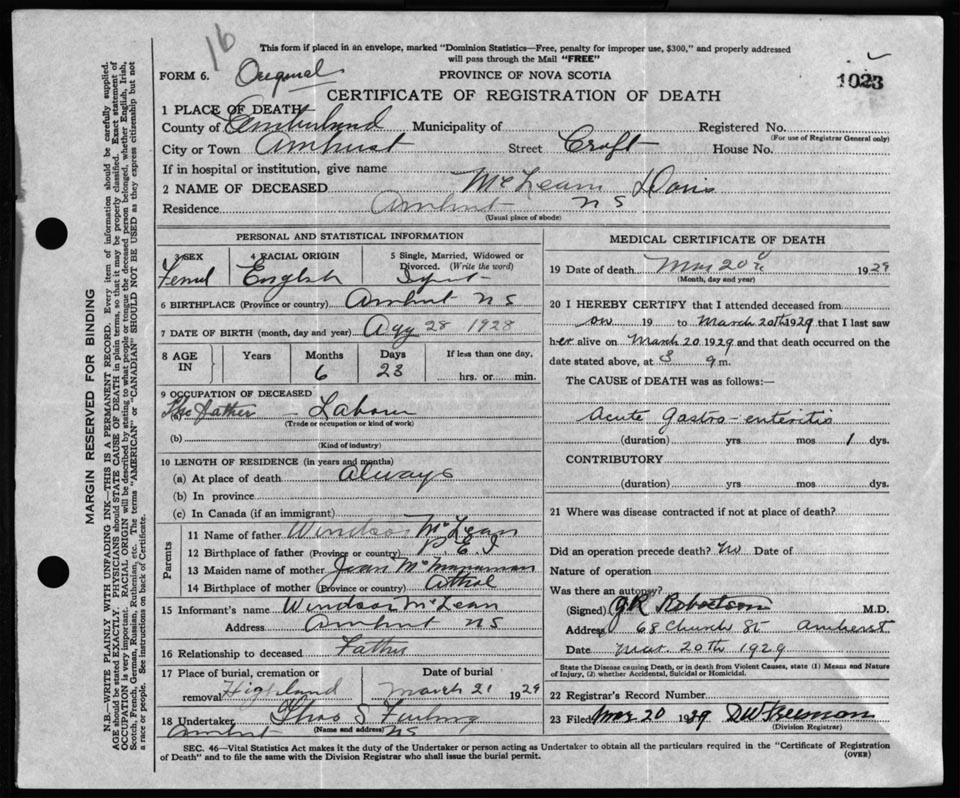 16
This form if placed in an envelope, marked "Dominion Statistics—Free, penalty for improper use, $300," and properly addressed
will pass through the Mail "FREE"
FORM 6. Original PROVINCE OF NOVA SCOTIA 1023
CERTIFICATE OF REGISTRATION OF DEATH
1 PLACE OF DEATH
County of Cumberland Municipality of Registered No.
(For use of Registrar General only)
City or Town Amherst Street Croft House No.
If in hospital or institution, give name
2 NAME OF DECEASED McLean Doris
Residence Amherst NS
(Usual place of abode)
PERSONAL AND STATISTICAL INFORMATION
3 SEX 4 RACIAL ORIGIN 5 Single, Married, Widowed or
Divorced. (Write the word)
English
6 BIRTHPLACE (Province or country) Amherst NS
7 DATE OF BIRTH (month, day and year) 28 1928
8 AGE IN Years Months Days If less than one day,
6 23 hrs. or min.
9 OCCUPATION OF DECEASED
(a) The father - Labour
(Trade or occupation or kind of work)
(b)
(Kind of industry)
10 LENGTH OF RESIDENCE (in years and months)
(a) At place of death Always
(b) In province
(c) In Canada (if an immigrant)
Parents
11 Name of father Windsor McLean
12 Birthplace of father (Province or country) P.E.I
13 Maiden name of mother Jean McManaman
14 Birthplace of mother (Province or country) Athol
15 Informant's name Windsor McLean
Address Amherst NS
16 Relationship to deceased Father
17 Place of burial, cremation or Date of burial
removal Highland March 21 1929
18 Undertaker Thos S
(Name and address)
Amherst NS
MEDICAL CERTIFICATE OF DEATH
19 Date of death Mar 20 th 1929
(Month, day and year)
20 I HEREBY CERTIFY that I attended deceased from
on 19 to March 20th 1929 that I last saw
her alive on March 20 1929 and that death occurred on the
date stated above, at 3 m.
The CAUSE of DEATH was as follows:—
Acute gastro-enteritis
(duration) yrs mos 1 dys.
CONTRIBUTORY
(duration) yrs mos dys.
21 Where was disease contracted if not at place of death?
Did an operation precede death? No Date of
Nature of operation
Was there an autopsy?
(Signed) J.R Robertson M.D.
Address 68 Church St Amherst
Date Mar. 20th 1929
State the Disease causing Death, or in death from Violent Causes, state (1) Means and Nature
of Injury, (2) whether Accidental, Suicidal or Homicidal.
22 Registrar's Record Number
23 Filed Mar 20 1929
(Division Registrar)
SEC. 46—Vital Statistics Act makes it the duty of the Undertaker or person acting as Undertaker to obtain all the particulars required in the "Certificate of Registration
of Death" and to file the same with the Division Registrar who shall issue the burial permit. (OVER)
MARGIN RESERVED FOR BINDING
N.B.—WRITE PLAINLY WITH UNFADING INK—THIS IS A PERMANENT RECORD. Every item of information should be carefully supplied.
AGE should be stated EXACTLY. PHYSICIANS should STATE CAUSE OF DEATH in plain terms, so that it may be properly classified. Exact statement of
OCCUPATION is very important. RACIAL ORIGIN will be described by stating to what people or tongue the deceased person belonged, whether English, Irish,
Scotch, French, German, Russian, Ruthenian, etc. The terms "AMERICAN" or "CANADIAN" SHOULD NOT BE USED as they express citizenship but not
a race or people. See instructions on back of Certificate.